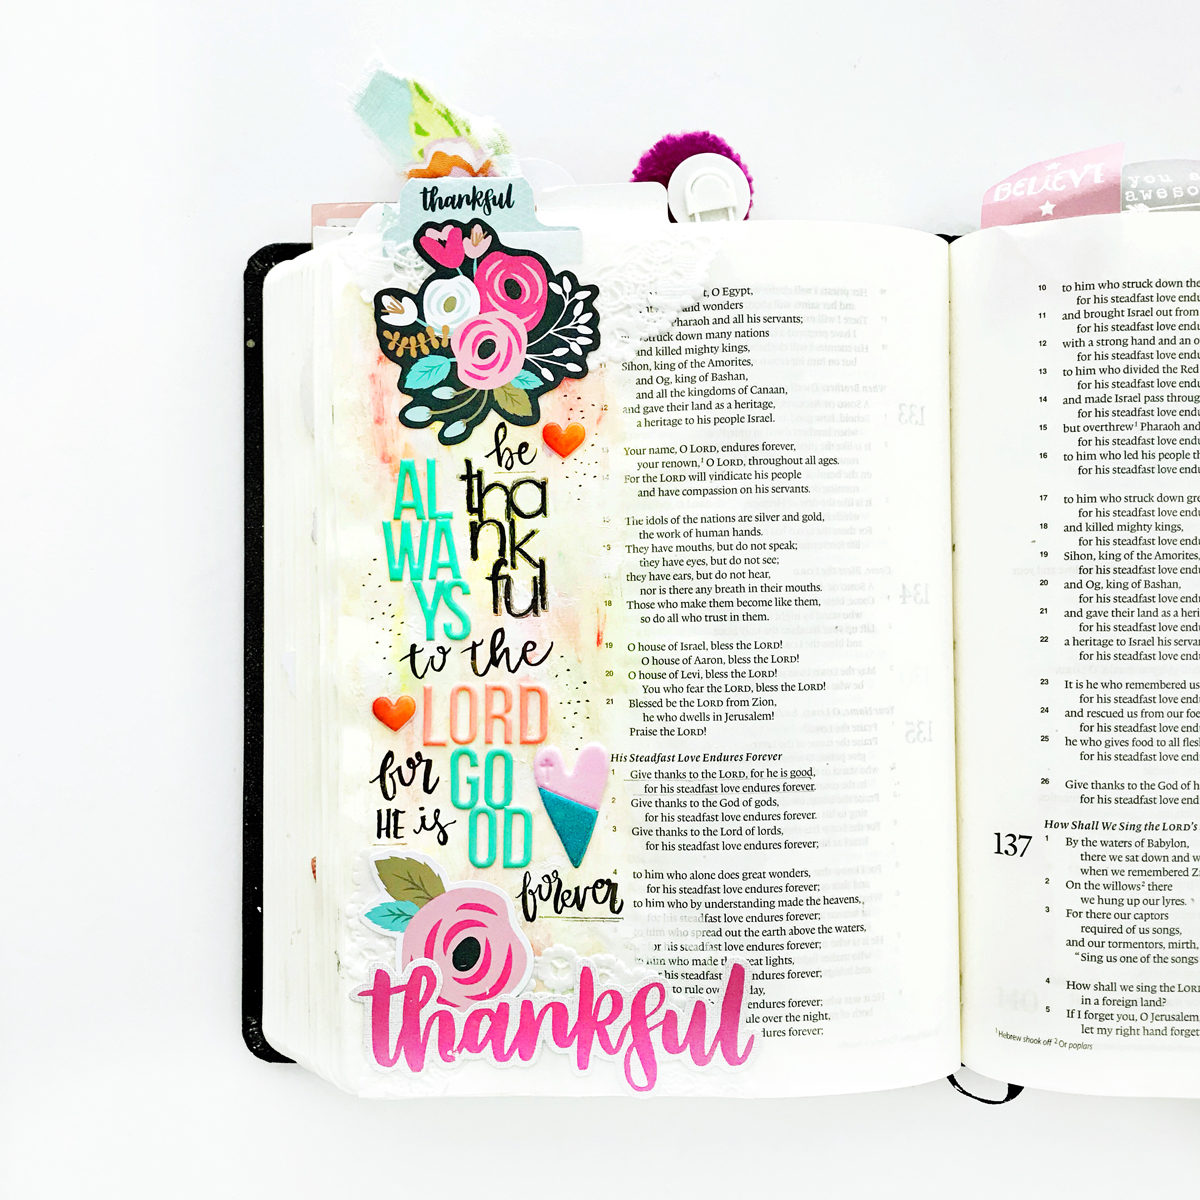 thankful
be
AL
WA
YS
tha
nk
ful
to the
LORD
for
HE is
GO
OD
forever
thankful
t, O Egypt,
and wonders
Pharaoh and all his servants;
struck down many nations
and killed mighty kings,
Sihon, king of the Amorites,
and Og, king of Bashan,
and all the kingdoms of Canaan,
12 and gave their land as a heritage,
a heritage to his people Israel.
13 Your name, O LORD, endures forever,
your renown,¹ O LORD, throughout all ages.
14 For the LORD will vindicate his people
and have compassion on his servants.
15 The idols of the nations are silver and gold,
the work of human hands.
16 They have mouths, but do not speak;
they have eyes, but do not see;
17 they have ears, but do not hear,
nor is there any breath in their mouths.
18 Those who make them become like them,
so do all who trust in them.
19 O house of Israel, bless the LORD!
O house of Aaron, bless the LORD!
20 O house of Levi, bless the LORD!
You who fear the LORD, bless the LORD!
21 Blessed be the LORD from Zion,
he who dwells in Jerusalem!
Praise the LORD!
His Steadfast Love Endures Forever
1 Give thanks to the LORD, for he is good,
for his steadfast love endures forever.
2 Give thanks to the God of gods,
for his steadfast love endures forever.
3 Give thanks to the Lord of lords,
for his steadfast love endures forever;
4 to him who alone does great wonders,
for his steadfast love endures forever;
to him who by understanding made the heavens,
for his steadfast love endures forever;
to him who spread out the earth above the waters,
for his steadfast love endures forever;
to him who made great lights,
his steadfast endures forever;
to rule day,
endures forever;
rule over the night,
endures forever;
BELIEVE
you
aweso
10 to him who struck down the
for his steadfast love endu
11 and brought Israel out from
for his steadfast love endu
12 with a strong hand and an o
for his steadfast love endu
13 to him who divided the Red
for his steadfast love endu
14 and made Israel pass throug
for his steadfast love endu
15 but overthrew¹ Pharaoh and
for his steadfast love endu
16 to him who led his people th
for his steadfast love endu
17 to him who struck down gre
for his steadfast love endu
18 and killed mighty kings,
for his steadfast love endu
19 Sihon, king of the Amorites,
for his steadfast love endu
20 and Og, king of Bashan,
for his steadfast love endu
21 and gave their land as a heri
for his steadfast love endu
22 a heritage to Israel his serva
for his steadfast love endu
23 It is he who remembered us
for his steadfast love endu
24 and rescued us from our foe
for his steadfast love endu
25 he who gives food to all flesh
for his steadfast love endu
26 Give thanks to the God of h
for his steadfast love endu
How Shall We Sing the LORD's
137
1 By the waters of Babylon,
there we sat down and w
when we remembered Z
2 On the willows² there
we hung up our lyres.
3 For there our captors
required of us songs,
and our tormentors, mirth,
"Sing us one of the songs
4 How shall we sing the LORD
in a foreign land?
5 If I forget you, O Jerusalem,
let my right hand forget
¹ Hebrew shook off ² Or poplars